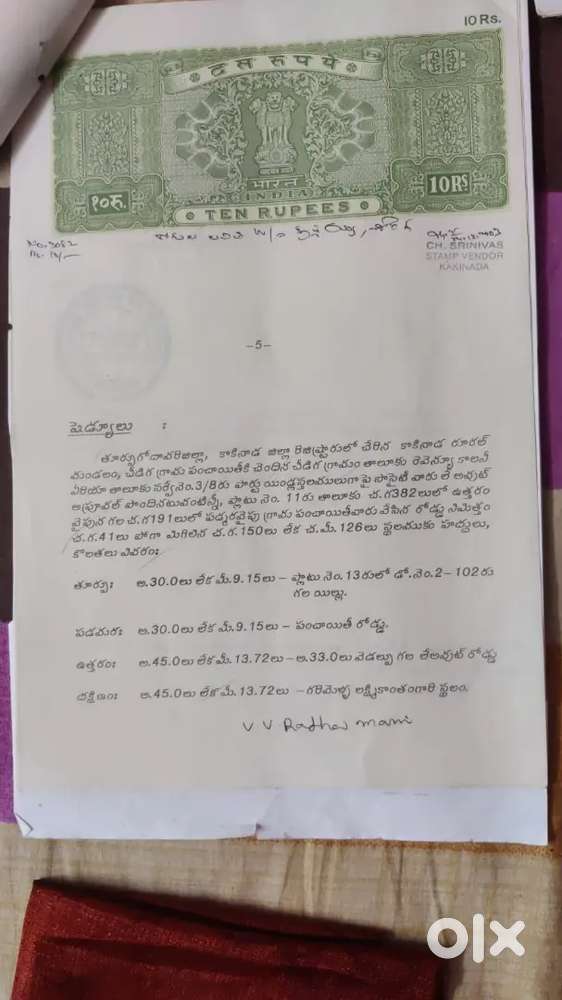 10 Rs.
दस रुपये
भारत
INDIA
१०रु.
10RS
TEN RUPEES
No. 3082
Rs. 10/-
W/o
CH. SRINIVAS
STAMP VENDOR
KAKINADA
-5-
షెడ్యూలు :
తూర్పుగోదావరిజిల్లా, కాకినాడ జిల్లా రిజిష్ట్రారులో చేరిన కాకినాడ రూరల్
మండలం, చీడిగ గ్రామ పంచాయితీకి చెందిన చీడిగ గ్రామం తాలూకు రెవెన్యూ కాలనీ
ఏరియా తాలూకు సర్వేనెం.3/8రు పార్టు యిండ్లస్థలములుగా పై సొసైటీ వారు లే అవుట్
అప్రూవల్ పొందినటువంటిన్నీ, ప్లాటు నెం. 11రు తాలూకు చ.గ382లులో ఉత్తరం
వైపున గల చ.గ191లులో పడమరవైపు గ్రామ పంచాయితీవారు వేసిన రోడ్డు నిమిత్తం
చ.గ.41లు పోగా మిగిలిన చ.గ.150లు లేక చ.మీ.126లు స్థలమునకు హద్దులు,
కొలతలు వివరం:
తూర్పు: అ.30.0లు లేక మీ.9.15లు - ప్లాటు నెం. 13రులో డో.నెం.2-102రు
గల యిల్లు.
పడమర: అ.30.0లు లేక మీ.9.15లు - పంచాయితీ రోడ్డు.
ఉత్తరం: అ.45.0లు లేక మీ.13.72లు - అ.33.0లు వెడల్పు గల లేఅవుట్ రోడ్డు
దక్షిణం: అ.45.0లు లేక మీ.13.72లు - గరిమెళ్ళ లక్ష్మీకాంతంగారి స్థలం.
V V Radha mani
olx